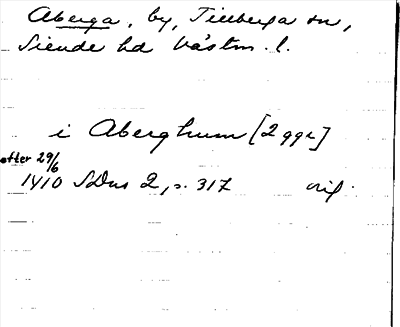 Aberga, by, Tillberga sn,
Siende hd Västm. l.
i Aberghum [2 ggr]
efter 29/6
1410 SDns 2, s. 317 orig.